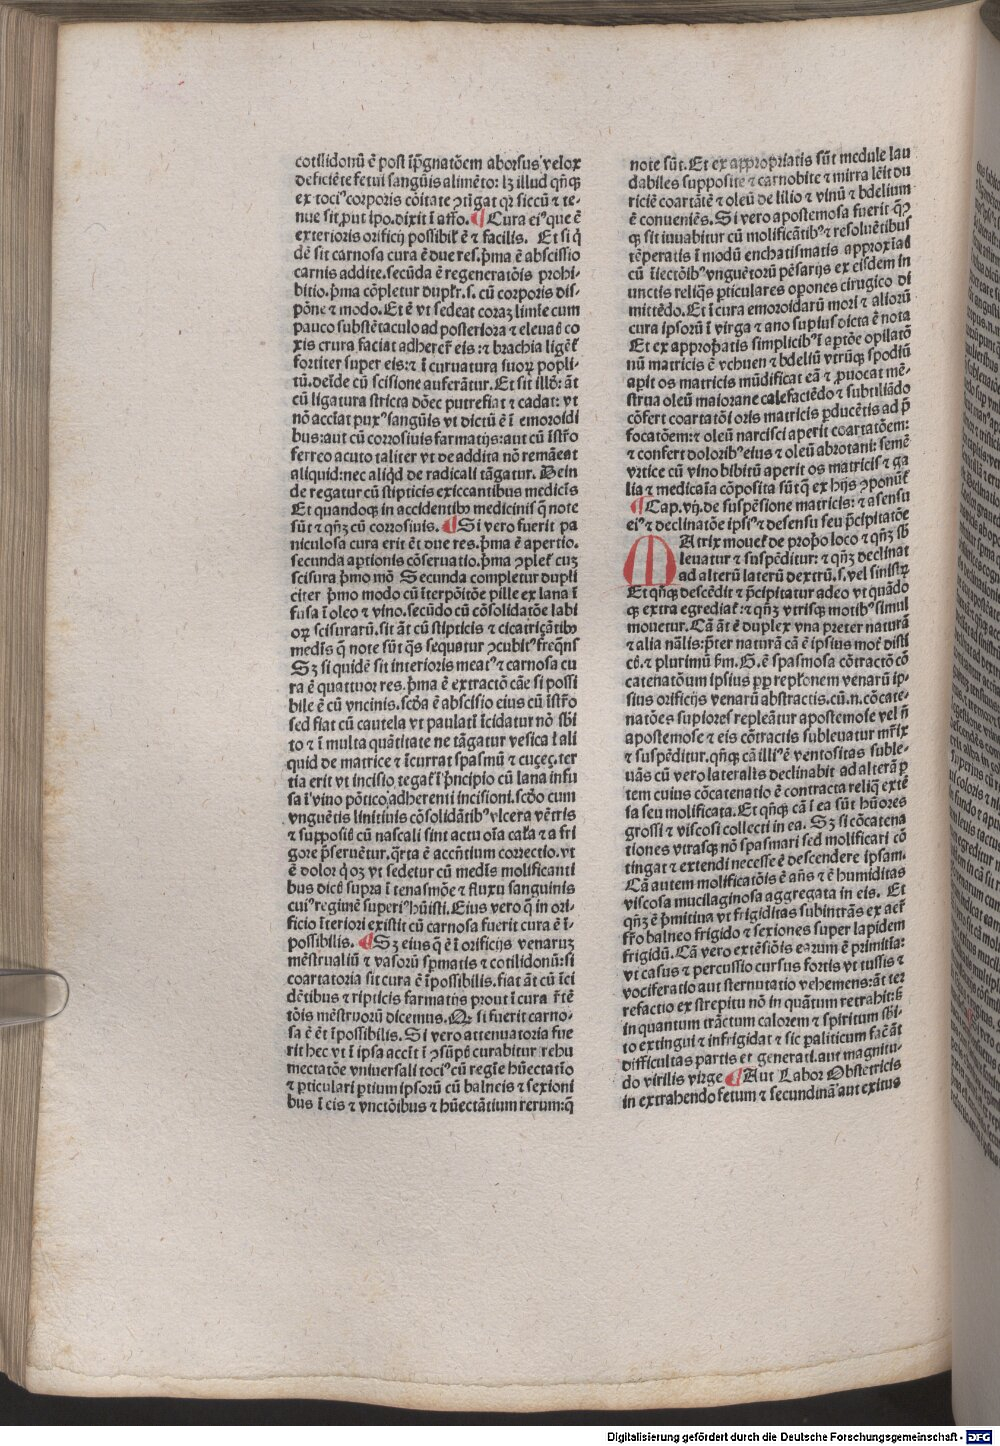 cotilidonū ē post īp̄gnatōem aborsus velox
deficiēte fetui sangūis alimēto: lꝫ illud qn̄qꝫ
ex toci⁹ corporis cōitate ꝯtīgat qꝛ siccū ⁊ te-
nue sit ꝓut ipo. dixit ī affo. ¶ Cura ei⁹ que ē
exterioris orificij possibil̄ ē ⁊ facilis. Et si q̇
dē sit carnosa cura ē due res. p̄ma ē abscissio
carnis addite. secūda ē regeneratōis prohi-
bitio. p̄ma cōpletur dupl̄r. s. cū corporis dis-
pōne ⁊ modo. Et ē vt sedeat coraꝫ limie cum
pauco substētaculo ad posteriora ⁊ eleuas co
xis crura faciat adherer̄ eis: ⁊ brachia ligēt̄
fortiter super eis: ⁊ ī curuatura suoꝝ popli-
tū. deīde cū scisione auferātur. Et sit illd̄: āt
cū ligatura stricta dōec putrefiat ⁊ cadat: vt
nō accīat pux⁹ sangūis vt dictū ē ī emoroidi
bus: aut cū corrosiuis farmatijs: aut cū īstr̄o
ferreo acuto taliter vt de addita nō remāeat
aliquid: nec aliq̇d de radicali tāgatur. Dein
de regatur cū stipticis exiccantibus medicīs
Et quandoqꝫ in accidentibꝰ medicinis q̄ note
sūt ⁊ qn̄qꝫ cū corrosiuis. ¶ Si vero fuerit pa
niculosa cura erit ēt due res. p̄ma ē apertio.
secunda aptionis cōseruatio. p̄ma ꝯplet̄ cuꝫ
scisura p̄mo mō Secunda completur dupli
citer p̄mo modo cū īterpōitōe pille ex lana ī
fusa ī oleo ⁊ vino. secūdo cū cōsolidatōe labi
oꝝ scisurarū. sit āt cū stipticis ⁊ cicatricātibꝰ
medīs q̄ note sūt q̄s sequatur ꝯcubit⁹ freq̄ns
Sꝫ si quidē sit interioris meat⁹ ⁊ carnosa cu
ra ē quattuor res. p̄ma ē extractō cāe si possi
bile ē cū vncinis. scd̄a ē abscisio eius cū īstr̄o
sed fiat cū cautela vt paulatī īcidatur nō sb̄i
to ⁊ ī multa quātitate ne tāgatur vesica ł ali
quid de matrice ⁊ īcurrat spasmū ⁊ cuçeç. ter
tia erit vt incisio. tegat̄ ī p̄ncipio cū lana infu
sa ī vino pōtico, adherenti incisioni. scd̄o cum
vnguētis linitiuis cōsolidātibꝰ vlcera vētris
⁊ suppositꝭ cū nascali sint actu oīa cal̄a ⁊ a fri
gore p̄seruētur. q̄rta ē accn̄tium correctio. vt
ē dolor q̇ oꝫ vt sedetur cū medīs molificanti
bus dictꝭ supra ī tenasmōe ⁊ fluxu sanguinis
cui⁹ regimē superi⁹ hūisti. Eius vero q̄ in ori-
ficio īteriori existit cū carnosa fuerit cura ē ī-
possibilis. ¶ Sꝫ eius q̄ ē ī orificijs venarum
mēstrualiū ⁊ vasorū sp̄matis ⁊ cotilidonū: si
coartatoria sit cura ē īpossibilis. fiat āt cū īci
dētibus ⁊ ripticis farmatijs prout ī cura r̄tē
tōis mēstruorū dicemus. Qꝛ si fuerit carno-
sa ē ēt īpossibilis. Si vero attenuatoria fue
rit hec vt ī ipsa accīt ī ꝯsūpꝭ curabitur rehu
mectatōe vniuersali toci⁹ cū regīe hūectatīo
⁊ pticulari ptium ipsorū cū balneis ⁊ sexioni
bus ī eis ⁊ vnctōibus ⁊ hūectātium rerum: q̄
note sūt. Et ex appropriatis sūt medule lau
dabiles supposite ⁊ carnobite ⁊ mirra lēit du
riciē coartātē ⁊ oleū de lilio ⁊ vinū ⁊ bdelium
ē conueniēs. Si vero apostemosa fuerit q̄cū
qꝫ sit iuuabitur cū molificātibꝰ ⁊ resoluētibus
tēperatis ī modū enchatismatis approxīaō
cū īiectōibꝰ vnguētorū pēsarijs ex eisdem in
unctis reliq̄s pticulares opōnes cirugico di
mittēdo. Et ī cura emoroidarū mori ⁊ aliorū
cura ipsorū ī virga ⁊ ano supius dicta ē nota
Et ex apprōpatis simplicibꝰ ī aptōe opilatō
nū matricis ē vchuen ⁊ bdeliū vtrūqꝫ spodiū
apit os matricis mūdificat eā ⁊ ꝓuocat mē-
strua oleū maiorane calefaciēdo ⁊ subtiliādo
cōfert coartatōi oris matricis ꝓducētis ad p̄
focatōem: ⁊ oleū narcisci aperit coartatōem:
⁊ confert doloribꝰ eius ⁊ oleū abrotani: semē
vrtice cū vino bibitū aperit os matricis ⁊ ga
lia ⁊ medicaīa cōposita sūt q̄ ex hijs ꝯponūt̄
¶ Cap. vij. de suspēsione matricis: ⁊ asensu
ei⁹ ⁊ declinatōe ipsi⁹ ⁊ desensu seu p̄cipitatōe
MAtrix mouet̄ de prop̄o loco ⁊ qn̄qꝫ sb̄
leuatur ⁊ suspēditur: ⁊ qn̄qꝫ declinat
ad alterū laterū dextrū. s. vel sinistꝝ
Et qn̄qꝫ descēdit ⁊ p̄cipitatur adeo vt quādo
qꝫ extra egrediat̄: ⁊ qn̄qꝫ vtrisqꝫ motibꝰ simul
mouetur. Cā āt ē duplex vna preter naturā
⁊ alia nālis: p̄ter naturā cā ē ipsius mot̄ disti
ctꝭ. ⁊ plurimū fm̄. G. ē spasmosa cōtractō cō
catenatōum ipsius ꝓp repl̄onem venarū ip-
sius orificijs venarū abstractis. cū. n. cōcate-
natōes supiores repleātur apostemose vel n̄
apostemose ⁊ eis cōtractis subleuatur mr̄ix
⁊ suspēditur. qn̄qꝫ cā illi⁹ ē ventositas suble-
uās cū vero lateralis declinabit ad alterā p
tem cuius cōcatenatio ē contracta reliq̄ extē
sa seu molificata. Et qn̄qꝫ cā ī ea sūt hūores
grossi ⁊ viscosi collecti in ea. Sꝫ si cōcatena
tiones vtrasqꝫ nō spasmari sed molificari cō
tingat ⁊ extendi necesse ē descendere ipsam.
Cā autem molificatōis ē an̄s ⁊ ē humiditas
viscosa mucilaginosa aggregata in eis. Et
qn̄qꝫ ē p̄mitiua vt frigiditas subintrās ex aer̄
fr̄o balneo frigido ⁊ sexiones super lapidem
frigidū. Cā vero extēsiōis earum ē primitīa:
vt casus ⁊ percussio cursus fortis vt tussis ⁊
vociferatio aut sternutatio vehemens: āt ter
refactio ex strepitu nō in quātum retrahit: s̄
in quantum trāctum calorem ⁊ spiritum sb̄i-
to extingui ⁊ infrigidat ⁊ sic paliticum faē āt
difficultas partis et generati. aut magnitu-
do virilis virge ¶ Aut Labor Obstetricis
in extrahendo fetum ⁊ secundinā aut exitus
Digitalisierung gefördert durch die Deutsche Forschungsgemeinschaft - DFG